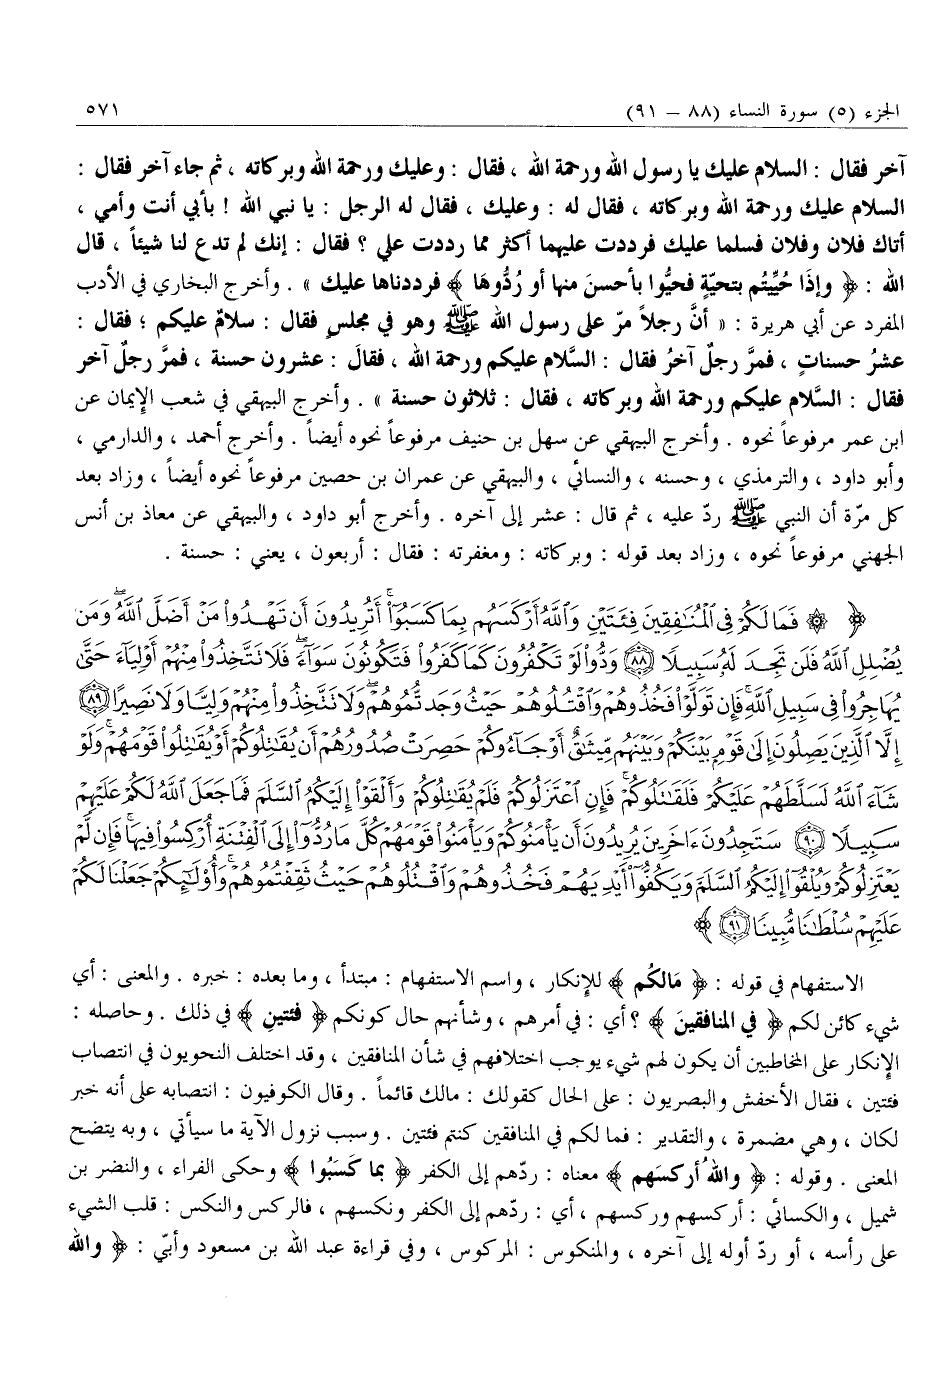 الجزء (٥) سورة النساء (٨٨ – ٩١) ٥٧١
آخر فقال : السلام عليك يا رسول الله ورحمة الله ، فقال : وعليك ورحمة الله وبركاته ، ثم جاء آخر فقال :
السلام عليك ورحمة الله وبركاته ، فقال له : وعليك ، فقال له الرجل : يا نبي الله ! بأبي أنت وأمي ،
أتاك فلان وفلان فسلما عليك فرددت عليهما أكثر مما رددت علي ؟ فقال : إنك لم تدع لنا شيئاً ، قال
الله : ﴿ وإذَا حُيِّيتُم بتحيّةٍ فحيُّوا بأحسنَ منها أو رُدُّوهَا ﴾ فرددناها عليك » . وأخرج البخاري في الأدب
المفرد عن أبي هريرة : « أنَّ رجلاً مرّ على رسول الله ﷺ وهو في مجلسٍ فقال : سلامٌ عليكم ؛ فقال :
عشرُ حسناتٍ ، فمرَّ رجلٌ آخرُ فقال : السَّلام عليكم ورحمة الله ، فقالَ : عشرون حسنة ، فمرَّ رجلٌ آخر
فقال : السَّلام عليكم ورحمة الله وبركاته ، فقال : ثلاثون حسنة » . وأخرج البيهقي في شعب الإيمان عن
ابن عمر مرفوعاً نحوه . وأخرج البيهقي عن سهل بن حنيف مرفوعاً نحوه أيضاً . وأخرج أحمد ، والدارمي ،
وأبو داود ، والترمذي ، وحسنه ، والنسائي ، والبيهقي عن عمران بن حصين مرفوعاً نحوه أيضاً ، وزاد بعد
كل مرّة أن النبي ﷺ ردّ عليه ، ثم قال : عشر إلى آخره . وأخرج أبو داود ، والبيهقي عن معاذ بن أنس
الجهني مرفوعاً نحوه ، وزاد بعد قوله : وبركاته : ومغفرته : فقال : أربعون ، يعني : حسنة .
﴿ ۞ فَمَا لَكُمْ فِي الْمُنَافِقِينَ فِئَتَيْنِ وَاللَّهُ أَرْكَسَهُم بِمَا كَسَبُوا ۚ أَتُرِيدُونَ أَن تَهْدُوا مَنْ أَضَلَّ اللَّهُ ۖ وَمَن
يُضْلِلِ اللَّهُ فَلَن تَجِدَ لَهُ سَبِيلًا ٨٨ وَدُّوا لَوْ تَكْفُرُونَ كَمَا كَفَرُوا فَتَكُونُونَ سَوَاءً ۖ فَلَا تَتَّخِذُوا مِنْهُمْ أَوْلِيَاءَ حَتَّىٰ
يُهَاجِرُوا فِي سَبِيلِ اللَّهِ ۚ فَإِن تَوَلَّوْا فَخُذُوهُمْ وَاقْتُلُوهُمْ حَيْثُ وَجَدتُّمُوهُمْ ۖ وَلَا تَتَّخِذُوا مِنْهُمْ وَلِيًّا وَلَا نَصِيرًا ٨٩
إِلَّا الَّذِينَ يَصِلُونَ إِلَىٰ قَوْمٍ بَيْنَكُمْ وَبَيْنَهُم مِّيثَاقٌ أَوْ جَاءُوكُمْ حَصِرَتْ صُدُورُهُمْ أَن يُقَاتِلُوكُمْ أَوْ يُقَاتِلُوا قَوْمَهُمْ ۚ وَلَوْ
شَاءَ اللَّهُ لَسَلَّطَهُمْ عَلَيْكُمْ فَلَقَاتَلُوكُمْ ۚ فَإِنِ اعْتَزَلُوكُمْ فَلَمْ يُقَاتِلُوكُمْ وَأَلْقَوْا إِلَيْكُمُ السَّلَمَ فَمَا جَعَلَ اللَّهُ لَكُمْ عَلَيْهِمْ
سَبِيلًا ٩٠ سَتَجِدُونَ ءَاخَرِينَ يُرِيدُونَ أَن يَأْمَنُوكُمْ وَيَأْمَنُوا قَوْمَهُمْ كُلَّ مَا رُدُّوا إِلَى الْفِتْنَةِ أُرْكِسُوا فِيهَا ۚ فَإِن لَّمْ
يَعْتَزِلُوكُمْ وَيُلْقُوا إِلَيْكُمُ السَّلَمَ وَيَكُفُّوا أَيْدِيَهُمْ فَخُذُوهُمْ وَاقْتُلُوهُمْ حَيْثُ ثَقِفْتُمُوهُمْ ۚ وَأُولَٰئِكُمْ جَعَلْنَا لَكُمْ
عَلَيْهِمْ سُلْطَانًا مُّبِينًا ٩١ ﴾
الاستفهام في قوله : ﴿ مَالكُم ﴾ للإنكار ، واسم الاستفهام : مبتدأ ، وما بعده : خبره . والمعنى : أي
شيء كائن لكم ﴿ في المنافقينَ ﴾ ؟ أي : في أمرهم ، وشأنهم حال كونكم ﴿ فئتينِ ﴾ في ذلك . وحاصله :
الإنكار على المخاطبين أن يكون لهم شيء يوجب اختلافهم في شأن المنافقين ، وقد اختلف النحويون في انتصاب
فئتين ، فقال الأخفش والبصريون : على الحال كقولك : مالك قائماً . وقال الكوفيون : انتصابه على أنه خبر
لكان ، وهي مضمرة ، والتقدير : فما لكم في المنافقين كنتم فئتين . وسبب نزول الآية ما سيأتي ، وبه يتضح
المعنى . وقوله : ﴿ واللهُ أركسَهم ﴾ معناه : ردّهم إلى الكفر ﴿ بما كَسَبُوا ﴾ وحكى الفراء ، والنضر بن
شميل ، والكسائي : أركسهم وركسهم ، أي : ردّهم إلى الكفر ونكسهم ، فالركس والنكس : قلب الشيء
على رأسه ، أو ردّ أوله إلى آخره ، والمنكوس : المركوس ، وفي قراءة عبد الله بن مسعود وأبيّ : ﴿ والله